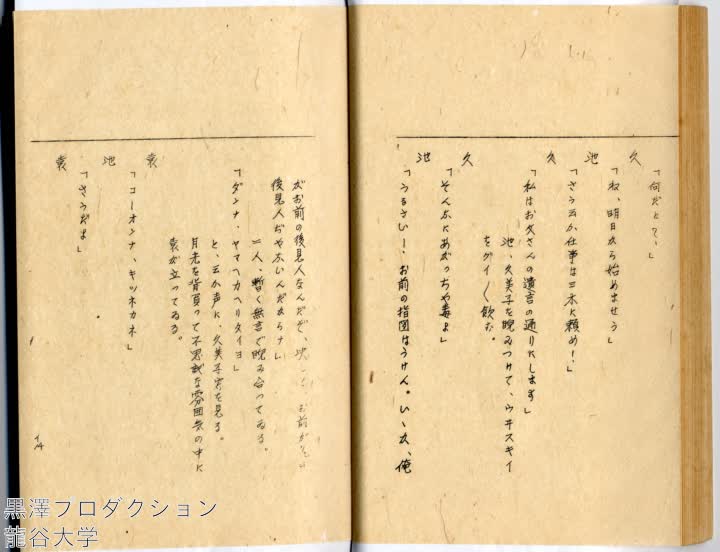 久
「何だって、」
池
「ね、明日から始めませう」
「さう云ふ仕事は三木に頼め!」
久
「私はお父さんの遺言の通りにします」
池、久美子を睨みつけて、ウヰスキイ
をグイ〱飲む。
久
「そんなにあがっちゃ毒よ」
池
「うるさい!、お前の指図はうけん。いゝか、俺
がお前の後見人なんだぞ、
後見人ぢゃないんだからナ」
二人、暫く無言で睨み合ってゐる。
袁
「ダンナ・ヤマヘカヘリタイヨ」
と、云ふ声に、久美子突を見る。
月光を背負って不思議な雰囲気の中に
袁が立ってゐる。
池
「コーオンナ、キツネカネ」
袁
「さうだよ」
14
黒澤プロダクション
龍谷大学